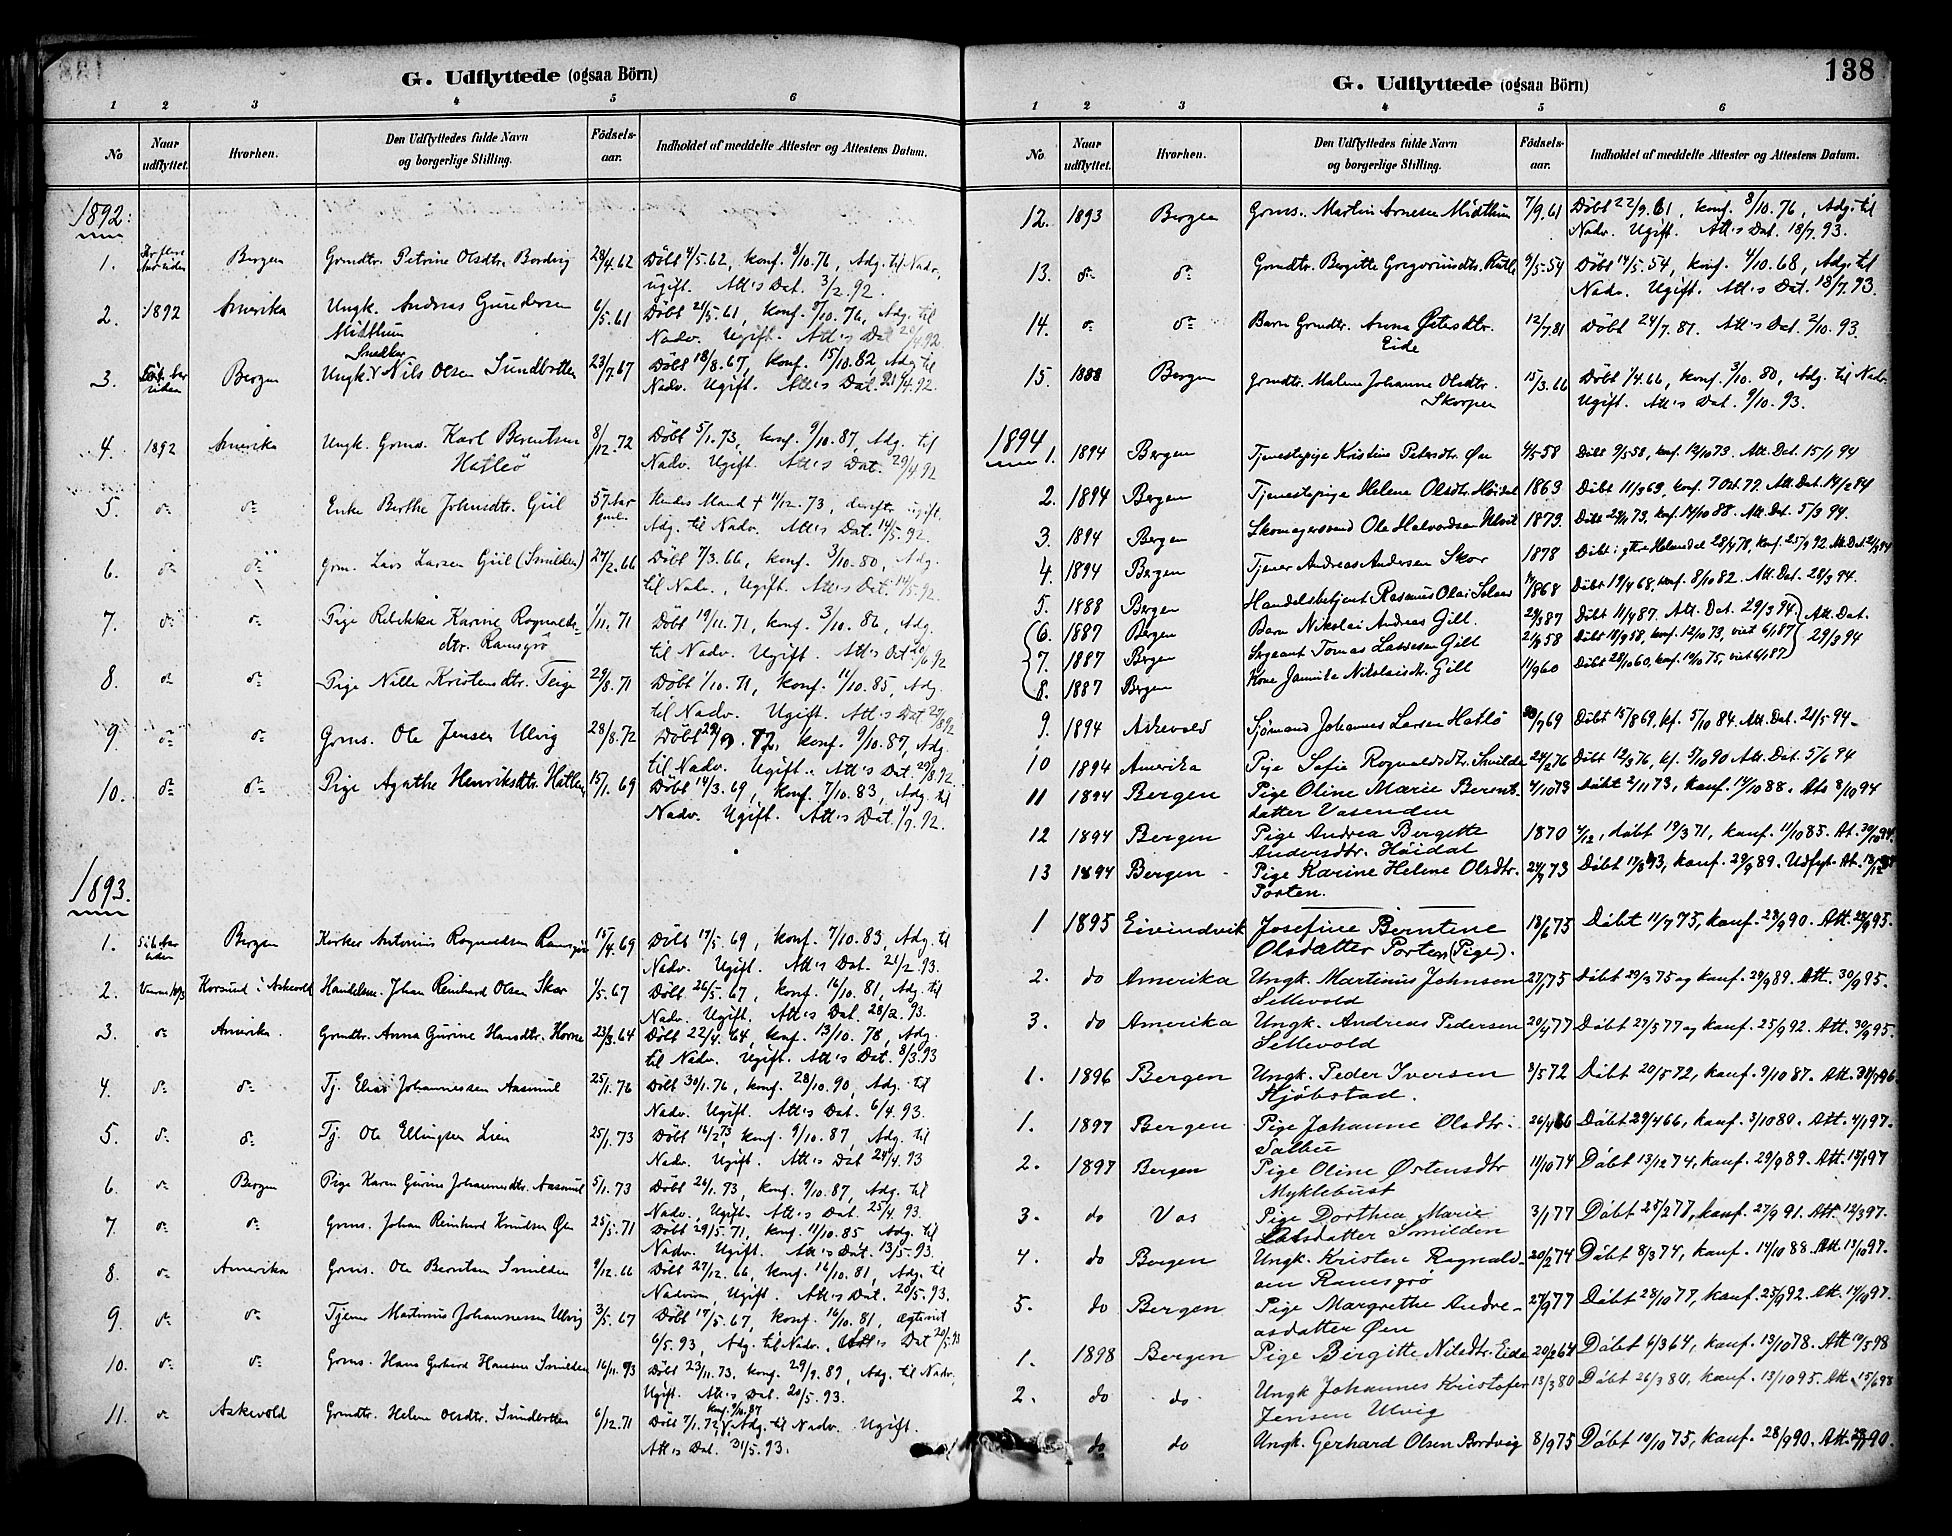 G. Udflyttede (ogsaa Börn)
1 2 3 4 5 6
No Naar udflyttet. Hvorhen. Den Udflyttedes fulde Navn og borgerlige Stilling. Födsels-aar. Indholdet af meddelte Attester og Attestens Datum.
1892:
1. Bergen Grmdtr. Petrine Olsdtr. Bordvig 28/4.62 Döbt 4/5.62, konf. 8/10.76, Adg. til Nadv.
ugift. Att's Dat. 3/2.92.
2. 1892 Amerika Ungk. Andreas Gundersen 6/5.61 Döbt 21/5.61, konf. 8/10.76, Adg. til
Midthun Nadv. Ugift. Att's Dat 20/4.92
Snedker
3. Bergen Ungk. Nils Olsen Sundbotten 23/7.67 Döbt 18/8.67, konf. 15/10.82, Adg. til
Nadv. Ugift. Att's Dat. 21/4.92.
4. 1892 Amerika Ungk. Grms. Karl Berentsen 8/12.72 Döbt 5/1.73, konf. 9/10.87, Adg. til
Hatleö Nadv. Ugift. Att's Dat. 29/4.92
5. do do Enke Berthe Johnsdtr. Guil 57 Aar gml. Hendes Mand + 11/12.73, derefter ugift.
Adg. til Nadv. Att's Dat. 14/5.92.
6. do do Grm. Lars Larsen Guil (Smilden) 27/2.66 Döbt 7/3.66, konf. 3/10.80, Adg.
til Nadv., Ugift. Att's Dat. 14/5.92.
7. do do Pige Rebekka Karine Rognalds- 1/11.71 Döbt 19/11.71, konf. 3/10.86, Adg.
dtr. Ramsgrö til Nadv. Ugift. Att's Dat 20/6.92
8. do do Pige Nille Kristensdtr. Teige 29/8.71 Döbt 1/10.71, konf. 11/10.85, Adg.
til Nadv. Ugift. Att's Dat 27/8.92
9. do do Grms. Ole Jensen Ulvig 28/8.72 Döbt 29/9.72, konf. 9/10.87, Adg.
til Nadv. Ugift. Att's Dat. 29/8.92.
10. do do Pige Agathe Henriksdtr. Hatleö 15/1.69 Döbt 14/3.69, konf. 7/10.83, Adg. til
Nadv. Ugift. Att's Dat. 1/9.92.
1893.
1. Bergen Kirker Antonius Rognaldsen Ramsgrö 15/4.69 Döbt 17/5.69, konf. 7/10.83, Adg. til
Nadv. Ugift. Att's Dat. 21/2.93.
2. Korsund i Askevold Handelsm. Johan Reinhard Olsen Skor 1/5.67 Döbt 26/5.67, konf. 16/10.81, Adg. til
Nadv. Ugift. Att's Dat. 28/2.93.
3. do Amerika. Grmdtr. Anna Gurine Hansdtr. Horne 23/3.64 Döbt 22/4.64, konf. 13/10.78, Adg.
til Nadv. Ugift. Att's Dat. 8/3.93
4. do do Tj. Elias Johannessen Aasmul 25/1.76 Döbt 30/1.76, konf. 28/10.90, Adg. til
Nadv. Ugift. Att's Dat. 6/4.93.
5. do do Tj. Ole Ellingsen Lien 25/1.73 Döbt 16/2.73, konf. 9/10.87, Adg. til
Nadv. Ugift. Att's Dat 24/4.93
6. do Bergen Pige Karen Gurine Johannesdtr. Aasmul 5/1.73 Döbt 26/1.73, konf. 9/10.87, Adg. til
Nadv. Ugift. Att's Dat. 25/4.93.
7. do do Grms. Johan Reinhard Knudsen Øen 25/5.71 Döbt 29/5.71, konf. 11/10.85 Adg. til
Nadv. Ugift. Att's Dat. 13/5.93.
8. do Amerika Grms. Ole Berntsen Smilden 9/12.66 Döbt 27/12.66, konf. 16/10.81, Adg. til
Ugift. Att's Dat. 20/5.93.
9. do do Tjener Martinus Johannessen Ulvig 3/5.67 Döbt 17/5.67, konf. 16/10.81, ægteviet
6/5.93, Adg. til Nadv. Att's Dat 20/5.93
10. do do Grms. Hans Gerhard Hansen Smilden 16/11.73 Döbt 23/11.73. konf. 29/9.89, Adg. til Nadv.
Ugift. Att's Dat. 20/5.93.
konf. 9/10.87
11. do Askevold Grmdtr. Helene Olsdtr. Sundbotten 6/12.71 Döbt 7/1.72, Adg. til Nadv. Ugift.
Att's Dat. 31/5.93.
138
G. Udflyttede (ogsaa Börn)
1 2 3 4 5 6
No. Naar udflyttet. Hvorhen. Den Udflyttedes fulde Navn og borgerlige Stilling. Födsels-aar. Indholdet af meddelte Attester og Attestens Datum.
12. 1893 Bergen Grms. Martin Arnesen Midthun 7/9.61 Döbt 22/9.61, konf. 8/10.76, Adg. til
Nadv. Ugift. Att's Dat. 18/7.93.
13. do do Grmdtr. Bergitte Gregoriusdtr. Rutle 9/5.54 Döbt 14/5.54, konf. 4/10.68, Adg. til
Nadv. Ugift. Att's Dat. 18/7.93.
14. do do Barn Grmdtr. Anna Østensdtr. 12/7.81 Döbt 24/7.81. Att's Dat. 2/10.93.
Eide
15. 1888 Bergen Grmdtr. Malene Johanne Olsdtr. 15/3.66 Döbt 1/4.66, konf. 3/10.80, Adg. til Nadv.
Skorpen Ugift. Att's Dat. 9/10.93.
1894
1. 1894 Bergen Tjenestepige Kristine Petersdtr. Øen 4/5 58 Döbt 9/5 58, konf. 12/10 73. Att. Dat. 15/1 94
2. 1894 Bergen Tjenestepige Helene Olsdtr. Höidal 1863 Döbt 11/3 63, konf. 7 Oct. 77. Att. Dat. 14/2 94
3. 1894 Bergen Skomagersvend Ole Halvordsen Ulvik 1873. Döbt 23/4 73, konf. 14/10 88. Att. Dat. 5/3 94.
4. 1894 Bergen Tjener Andreas Andersen Skor 1878 Döbt i 28/4 78, konf. 25/9 92. Att. Dat 21/3 94
5. 1888 Bergen Handelsbetjent Rasmus Olai 1868 Döbt 19/4 68, konf. 8/10 82. Att. Dat. 28/3 94.
6. 1887 Bergen Barn Nikolai Andreas Gill. 24/3 87 Döbt 11/4 87. Att. Dat. 29/3 94. Att. Dat.
7. 1887 Bergen Sergeant Tomas Lassesen Gill 21/8 58 Döbt 18/9 58, konf. 12/10 73, viet 6/1 87 29/3 94
8. 1887 Bergen Kone Jamile Nikolaisdtr. Gill 11/9 60 Döbt 28/10 60, konf. 10/10 75, viet 6/1 87
9. 1894 Askevold Sjömand Johannes Larsen Hatlö 30/7 69 Döbt 15/8 69, kf. 5/10 84. Att. Dat. 21/5 94.
10 1894 Amerika Pige Sofie Rognaldsdtr. Smilden 24/2 76 Döbt 12/3 76, kf. 5/10 90 Att. Dat. 5/6 94
11 1894 Bergen Pige Oline Marie Berents- 4/10 73 Döbt 2/11 73, konf. 14/10 88. Ats 8/10 94
datter Vasenden
12 1894 Bergen Pige Andrea Bergitte 1870 4/12, döbt 19/3 71, konf. 11/10 85. At. 30/10 94.
Andersdtr. Höidal
13 1894 Bergen Pige Karine Helene Olsdtr. 24/7 73 Döbt 17/8 93, konf. 29/9 89. Udflyt. At. 13/12 94
Porten.
1 1895 Eivindvik Josefine Berntine 13/6 75 Döbt 11/7 75, konf. 28/9 90. Att. 28/9 95.
Olsdatter Porten (Pige).
2. do Amerika Ungk. Martinus Johnsen 27/1 75 Döbt 29/3 75 og konf. 29/9 89. Att. 30/9 95.
Sellevold
3. do Amerika Ungk. Andreas Pedersen 20/4 77 Döbt 27/5 77 og konf. 25/9 92. Att. 30/9 95.
Sellevold
1. 1896 Bergen Ungk. Peder Iversen 3/5 72 Döbt 20/5 72, konf. 9/10 87. Att. 31/7 96.
Kjöbstad.
1. 1897 Bergen Pige Johanne Olsdtr. 26/4 66 Döbt 29/4 66, konf. 3/10 80. Att. 4/1 97.
Salbu
2. 1897 Bergen Pige Oline Østensdtr 11/10 74 Döbt 13/12 74, konf. 29/9 89. Att. 15/1 97
Myklebust
3. do Vos Pige Dorthea Marie 3/1 77 Döbt 25/2 77, konf. 27/9 91. Att. 12/3 97.
Larsdatter Smilden
4. do Bergen Ungk. Kristen Rognald- 20/2 74 Döbt 8/3 74, konf. 14/10 88. Att. 13/10 97.
sen Ramsgrö
5. do Bergen Pige Margrethe Andre- 27/9 77 Döbt 28/10 77, konf. 25/9 92. Att. 14/10 97.
asdatter Øen
1. 1898 Bergen Pige Birgitte Nilsdtr. Eide 20/2 64 Döbt 6/3 64, konf. 13/10 78. Att 14/5 98
2. do do Ungk Johannes Kristofer 13/3 80 Döbt 26/3 80, konf. 13/10 95. Att. 15/6 98
Jensen Ulvig
do do Ungk. Gerhard Olsen Bordvig 8/9 75 Döbt 10/10 75, konf. 28/9 90. Att.